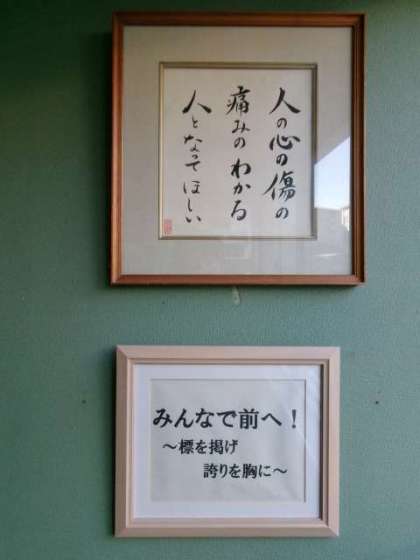 人の心の傷の
痛みのわかる
人となってほしい
みんなで前へ！
～標を掲げ
誇りを胸に～